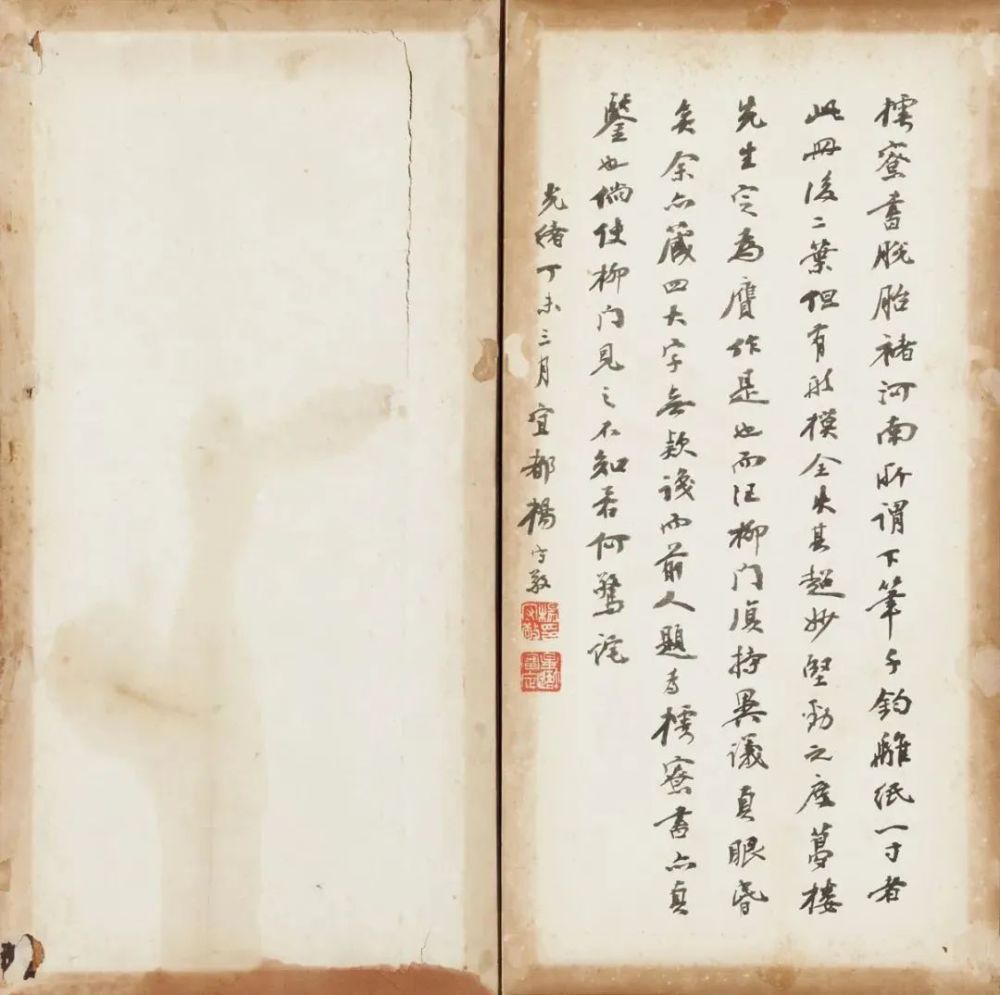 樗寮書脫胎褚河南所謂下筆千鈞離紙一寸者
此冊後二葉但有形模全失其超妙堅勁之度夢樓
先生定為贋作是也而汪柳门湏持異議真眼昏
矣余亦藏四大字無款識而前人題為樗寮書亦真
鑒也倘使柳门見之不知若何驚詫
光緒丁未三月宜都楊守敬